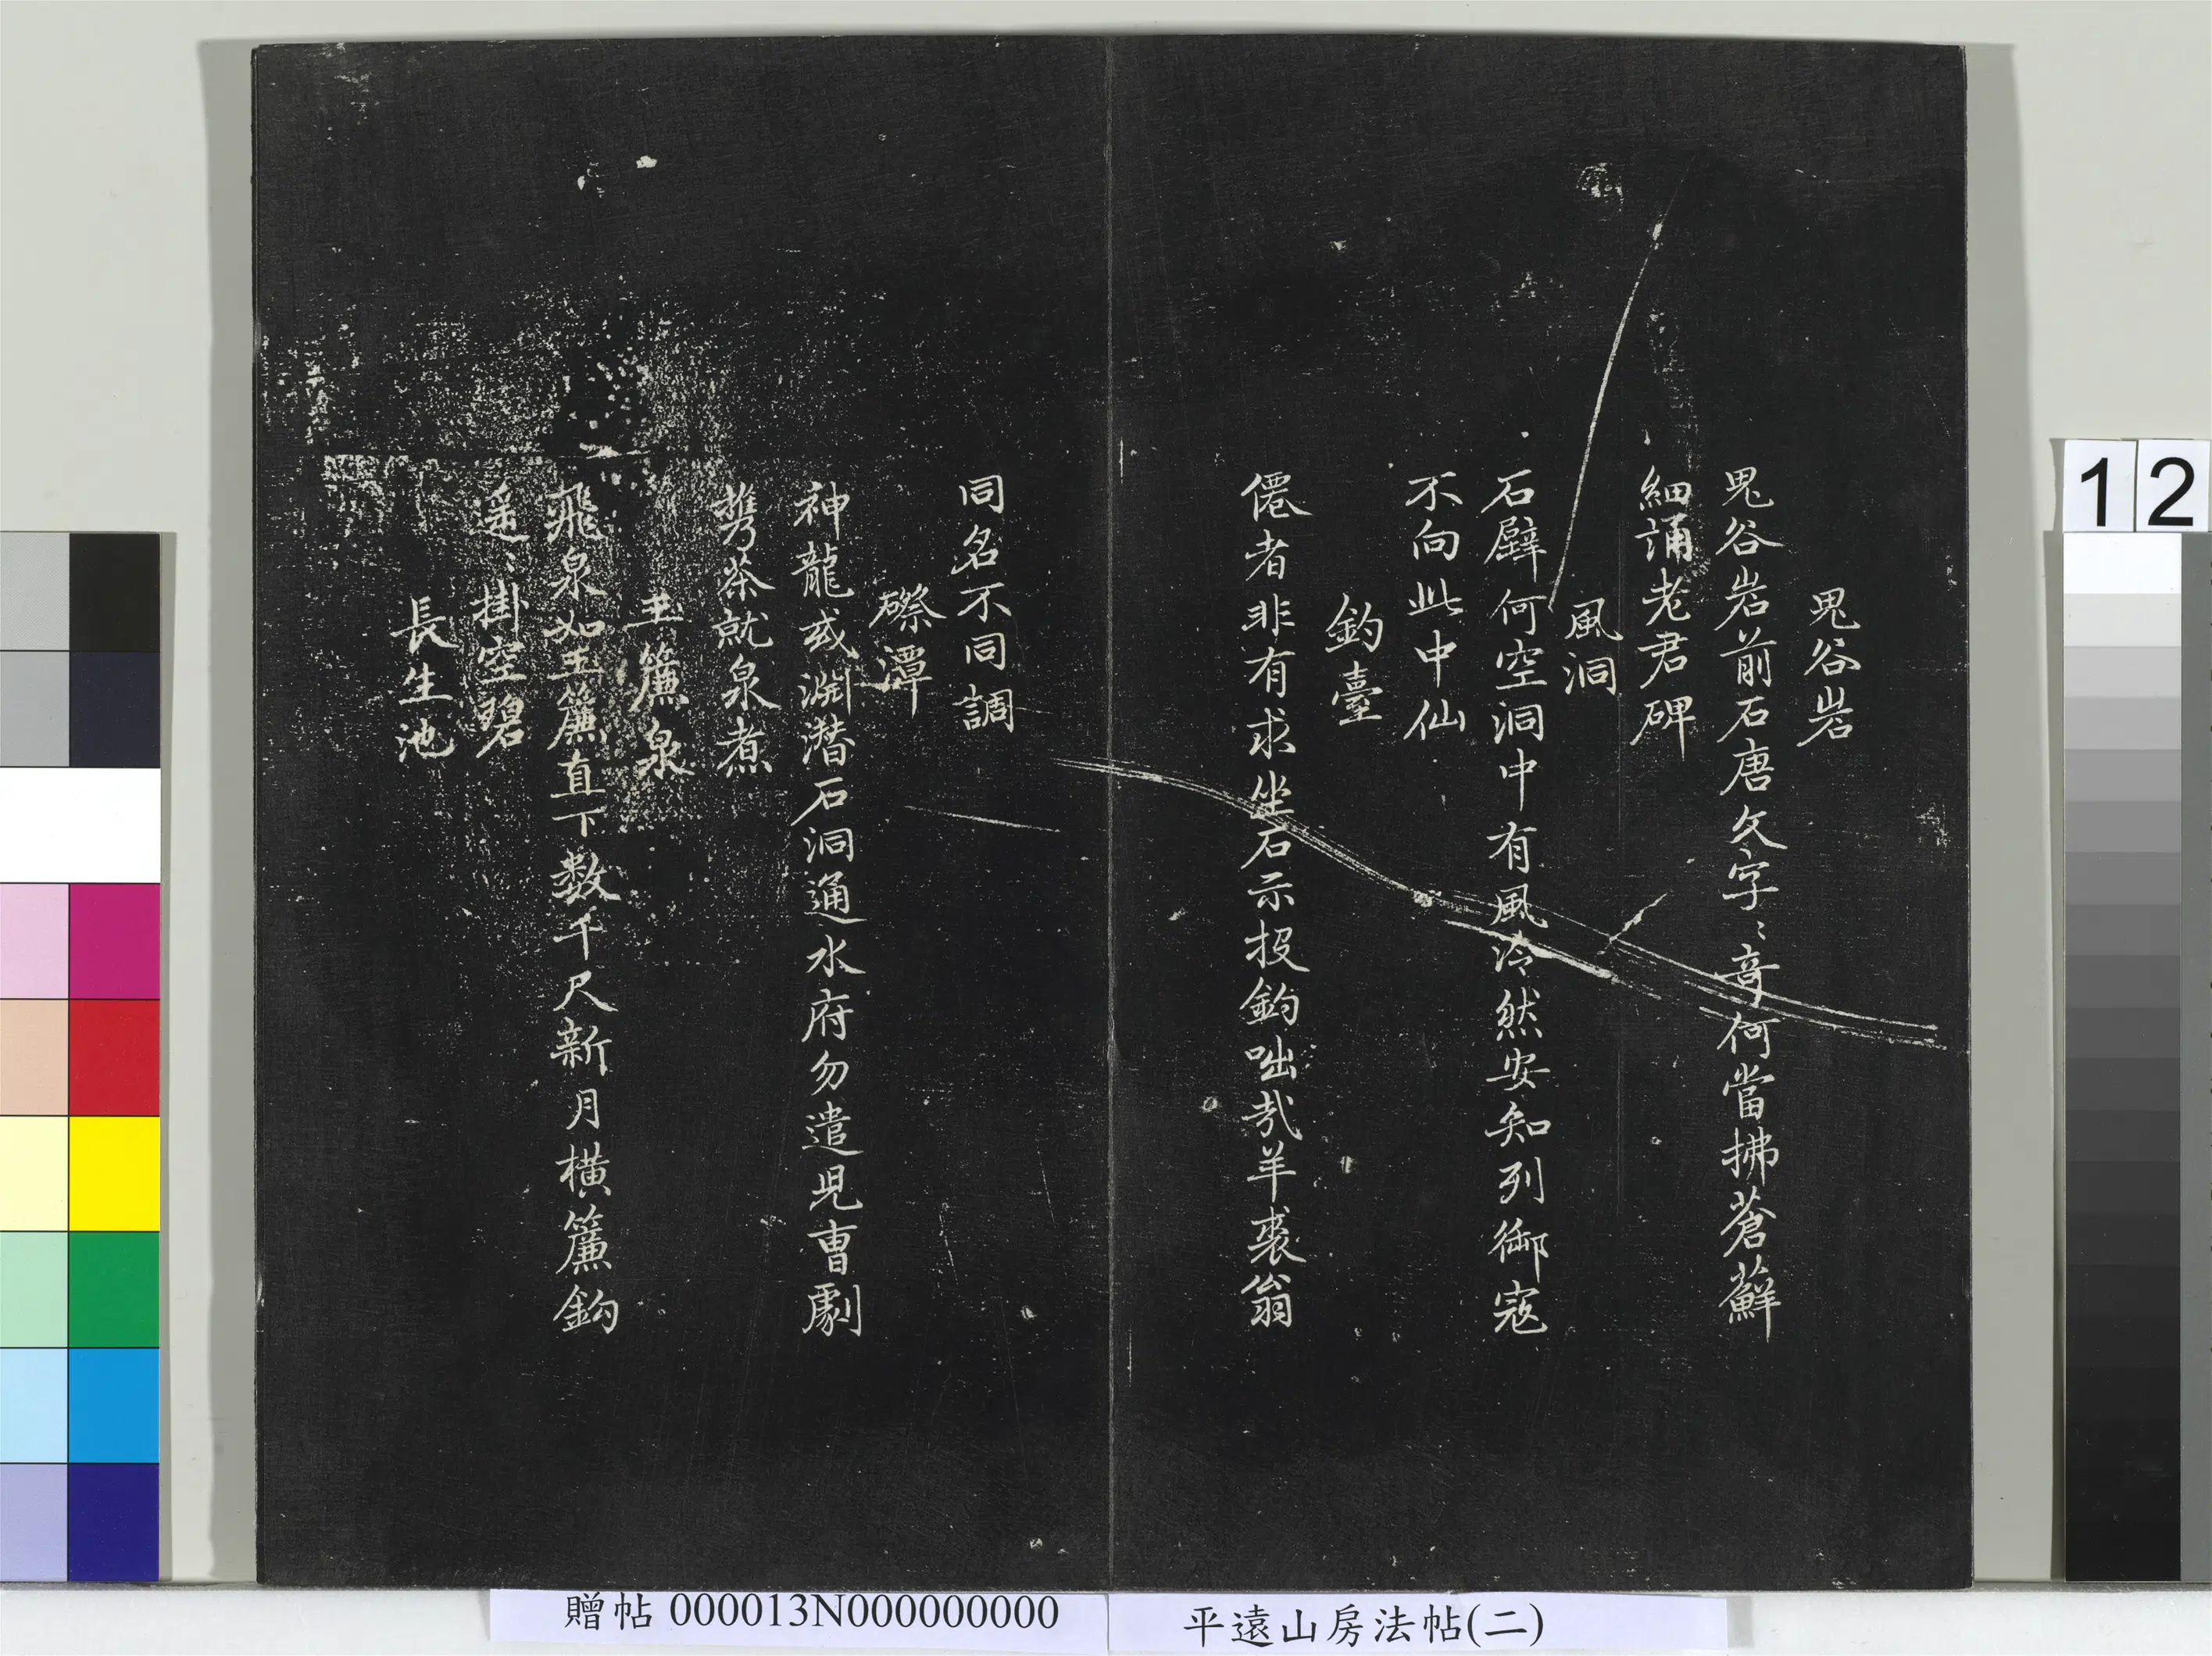 鬼谷岩
鬼谷岩前石唐文字〻奇何當拂蒼蘚
細誦老君碑
風洞
石壁何空洞中有風泠然安知列御寇
不向此中仙
釣臺
僊者非有求坐石示投鉤咄哉羊裘翁
同名不同調
磜潭
神龍或淵潜石洞通水府勿遣児曹劇
携茶就泉煮
玉簾泉
飛泉如玉簾直下数千尺新月横簾鉤
遥〻掛空碧
長生池
12
贈帖 000013N000000000
平遠山房法帖(二)